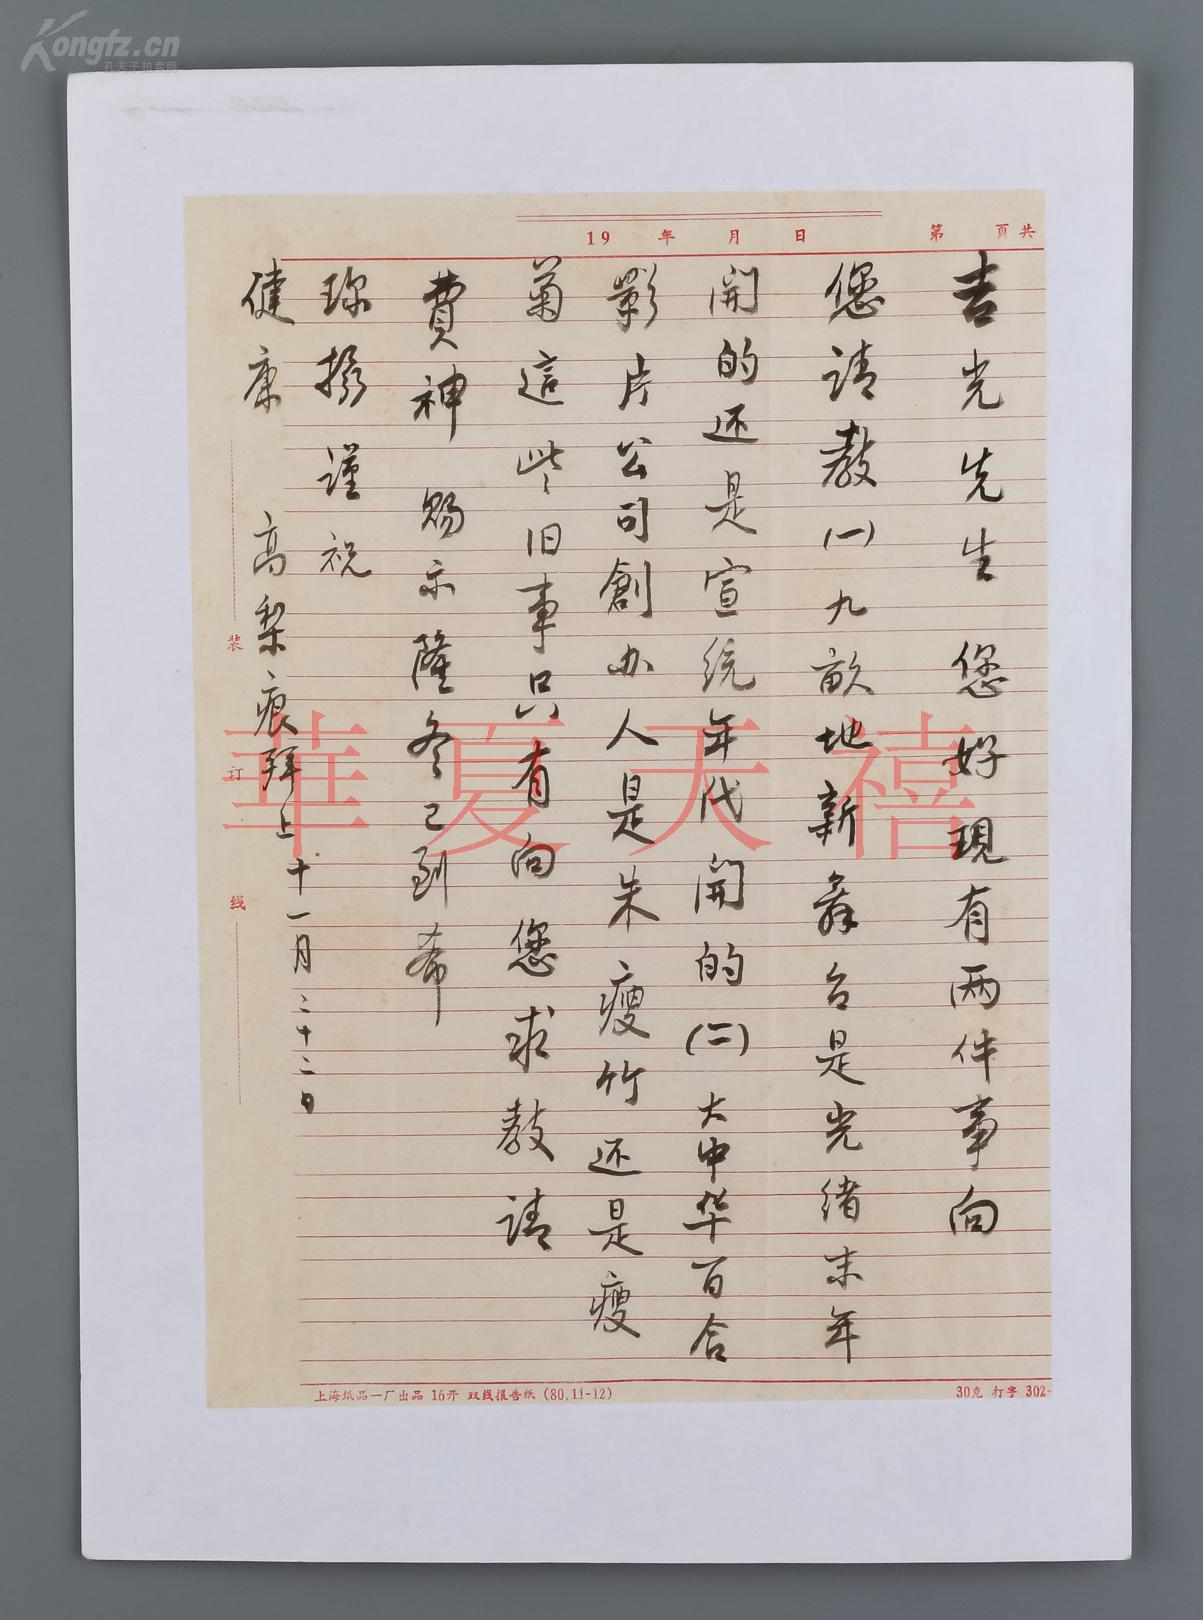 Kongfz.cn
孔夫子拍卖网
19 年 月 日
第 页共
吉光先生 您好現有两件事向
您请教(一)九畝地新舞台是光绪末年
開的还是宣统年代開的(二)大中华百合
影片公司創办人是朱瘦竹还是瘦
菊這些旧事只有向您求教请
費神 赐示隆冬已到希
珍摄谨祝
健康 高梨痕拜上十一月二十二日
装
订
线
華夏天禧
上海纸品一厂出品 16开 双线报告纸 (80.11-12)
30克 打字 302-